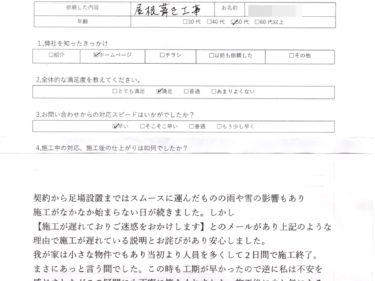 依頼した内容 屋根葺き工事 お名前
年齢 □30代 □40代 ☑50代 □60代以上
1,弊社を知ったきっかけ
□紹介 ☑ホームページ □チラシ □以前も依頼した □その他
2,全体的な満足度を教えてください。
□とても満足 ☑満足 □普通 □あまりよくない
3,お問い合わせからの対応スピードはいかがでしたか？
☑早い □そこそこ早い □普通 □もう少し早く
4,施工中の対応、施工後の仕上がりは如何でしたか？
契約から足場設置まではスムースに運んだものの雨や雪の影響もあり
施工がなかなか始まらない日が続きました。しかし
【施工が遅れておりご迷惑をおかけします】とのメールがあり上記のような
理由で施工が遅れている説明とお詫びがあり安心しました。
我が家は小さな物件でもあり当初より人員を多くして2日間で施工終了。
まさにあっと言う間でした。この時も工期が早かったので逆に私は不安を